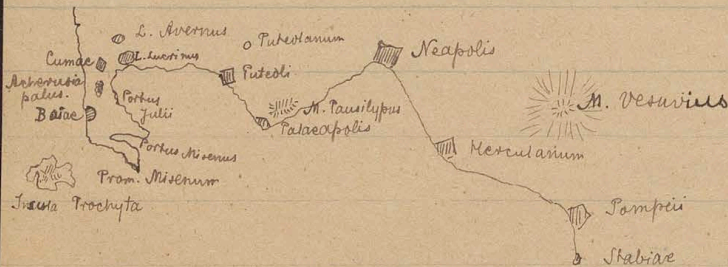 L. Avernus
Puteolanum
Neapolis
Cumae
L. Lucrinus
Puteoli
Acherusia
palus.
Portus
Julii
M. Pausilypus
M. Vesuvius
Baiae
Palaeapolis
Portus Misenus
Herculanum
Prom. Misenum
Insula Prochyta
Pompeii
Stabiae